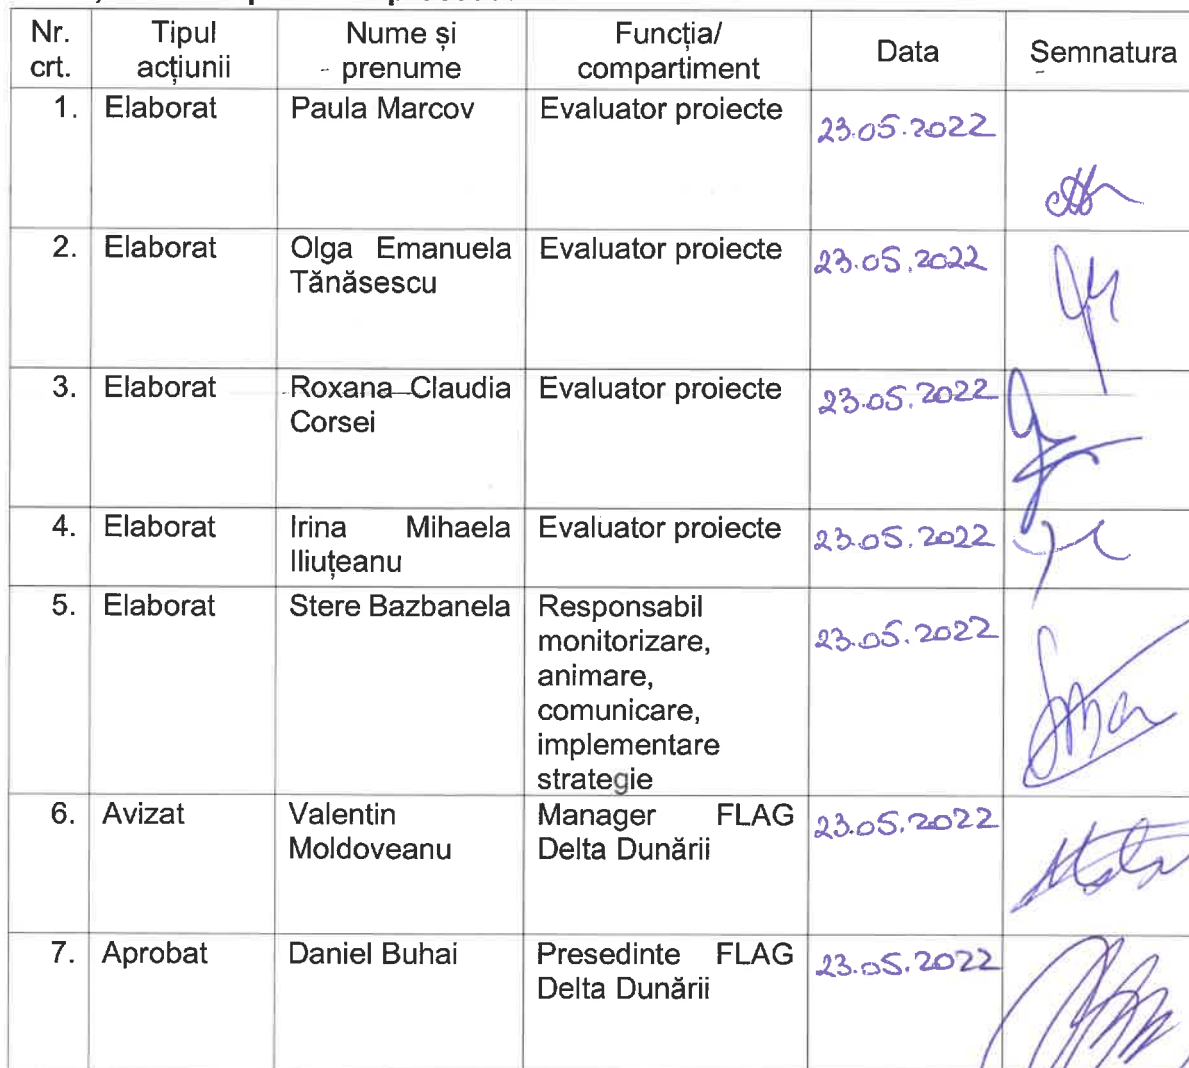 Nr. crt. Tipul acțiunii Nume și prenume Funcția/ compartiment Data Semnatura
1. Elaborat Paula Marcov Evaluator proiecte 23.05.2022
2. Elaborat Olga Emanuela Tănăsescu Evaluator proiecte 23.05.2022
3. Elaborat Roxana Claudia Corsei Evaluator proiecte 23.05.2022
4. Elaborat Irina Mihaela Iliuțeanu Evaluator proiecte 23.05.2022
5. Elaborat Stere Bazbanela Responsabil monitorizare, animare, comunicare, implementare strategie 23.05.2022
6. Avizat Valentin Moldoveanu Manager FLAG Delta Dunării 23.05.2022
7. Aprobat Daniel Buhai Presedinte FLAG Delta Dunării 23.05.2022